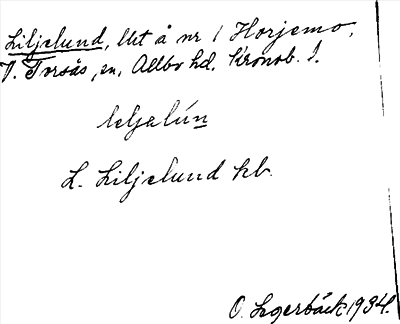 Liljelund, lht å nr 1 Horjemo,
V. Torsås sn, Allbo hd. Kronob. l.
leljalún
L. Liljelund kb.
O. Lagerbäck 1934.